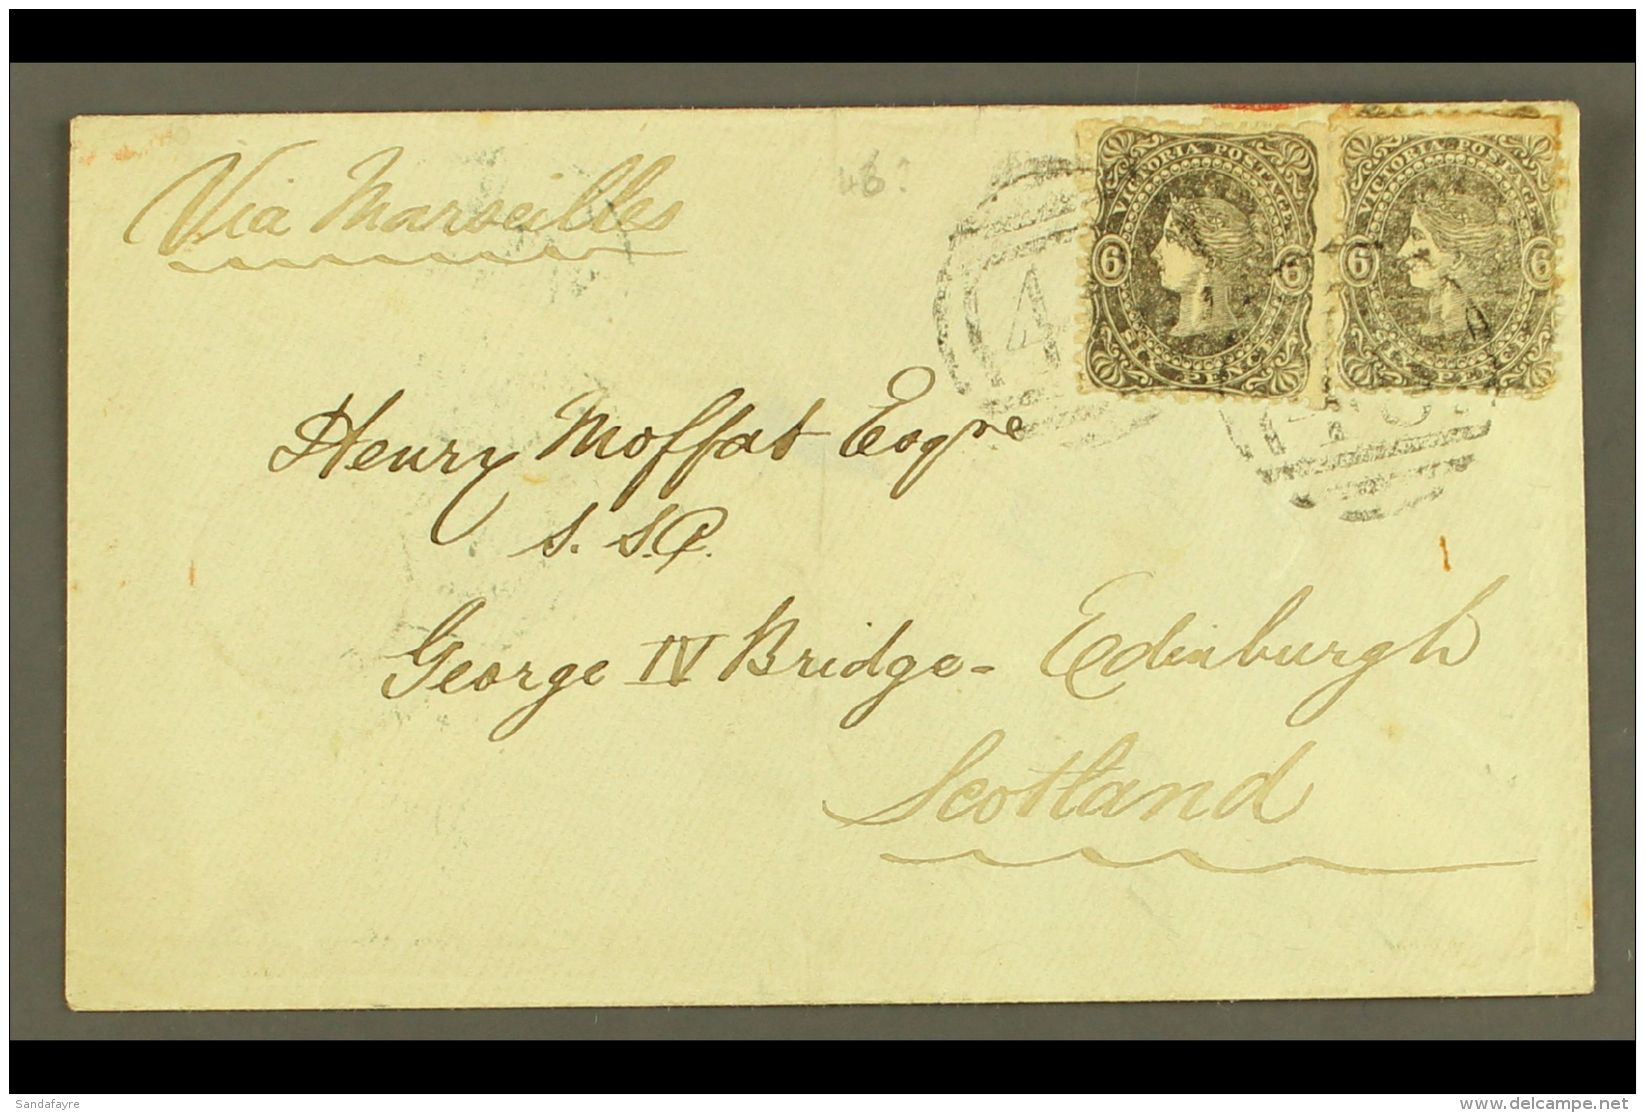 Via Marseilles
46?
VICTORIA POSTAGE
6 6
SIX PENCE
VICTORIA POSTAGE
6 6
SIX PENCE
4
46
Henry Moffat Esqre
S. S.C.
George IV Bridge - Edinburgh
Scotland
Sandafayre
delcampe.net